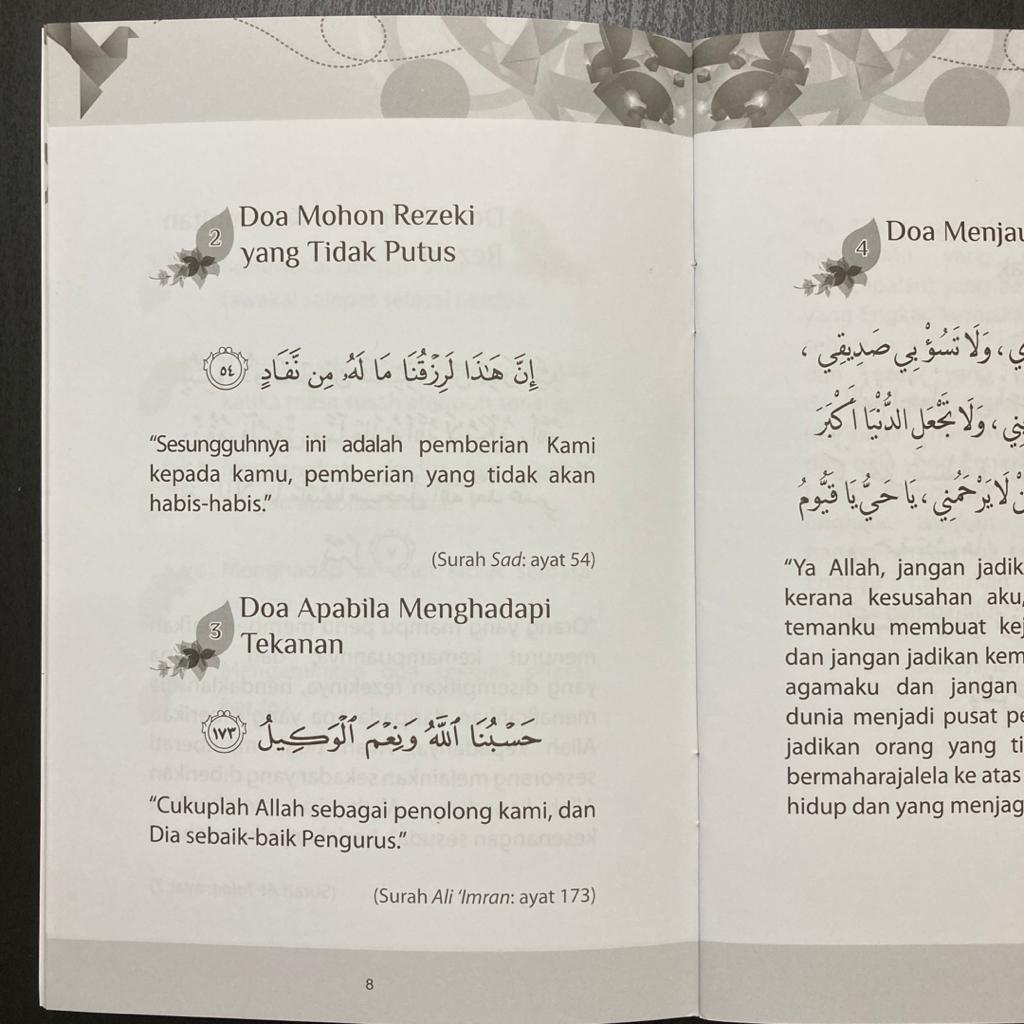 2
Doa Mohon Rezeki
yang Tidak Putus
إِنَّ هَـٰذَا لَرِزْقُنَا مَا لَهُۥ مِن نَّفَادٍ ٥٤
“Sesungguhnya ini adalah pemberian Kami
kepada kamu, pemberian yang tidak akan
habis-habis.”
(Surah Sad: ayat 54)
3
Doa Apabila Menghadapi
Tekanan
حَسْبُنَا ٱللَّهُ وَنِعْمَ ٱلْوَكِيلُ ١٧٣
“Cukuplah Allah sebagai penolong kami, dan
Dia sebaik-baik Pengurus.”
(Surah Ali ‘Imran: ayat 173)
8
4
Doa
، وَلَا تَسُؤْ بِي صَدِيقِي ،
، وَلَا تَجْعَلِ الدُّنْيَا أَكْبَرَ
لَا يَرْحَمُنِي ، يَا حَيُّ يَا قَيُّومُ
“Ya Allah, jangan
kerana kesusahan aku,
temanku membuat
dan jangan jadikan
agamaku dan jangan
dunia menjadi pusat
jadikan orang yang
bermaharajalela ke atas
hidup dan yang